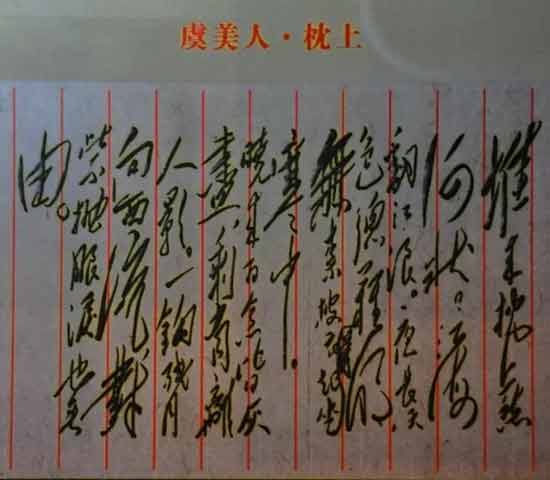 虞美人·枕上
堆来枕上愁
何状，江海
翻江浪。夜长天
色總難明
無奈披衣起坐
薄寒中。
晓来百念皆灰
燼，剩有離
人影。一钩残月
向西流，對
此不抛眼泪也无
由。